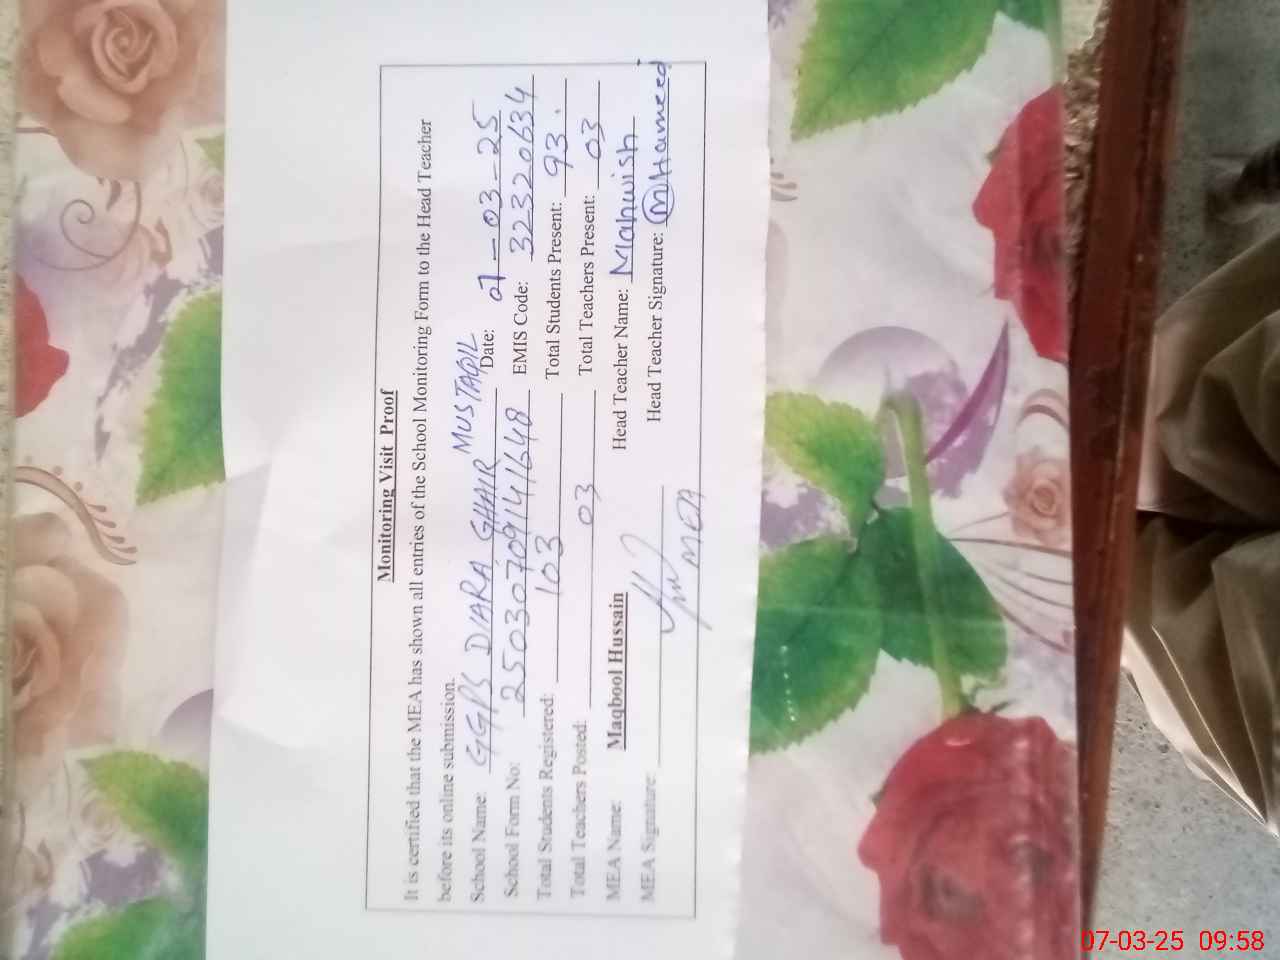 Monitoring Visit Proof
It is certified that the MEA has shown all entries of the School Monitoring Form to the Head Teacher
before its online submission.
School Name: GGPS DIARA GHAIR MUSTAQIL Date: 07-03-25
School Form No: 25030709141648 EMIS Code: 32320634
Total Students Registered: 103 Total Students Present: 93.
Total Teachers Posted: 03 Total Teachers Present: 03
MEA Name: Maqbool Hussain Head Teacher Name: Mahwish
MEA Signature: Head Teacher Signature: MHameed
MEA
07-03-25 09:58